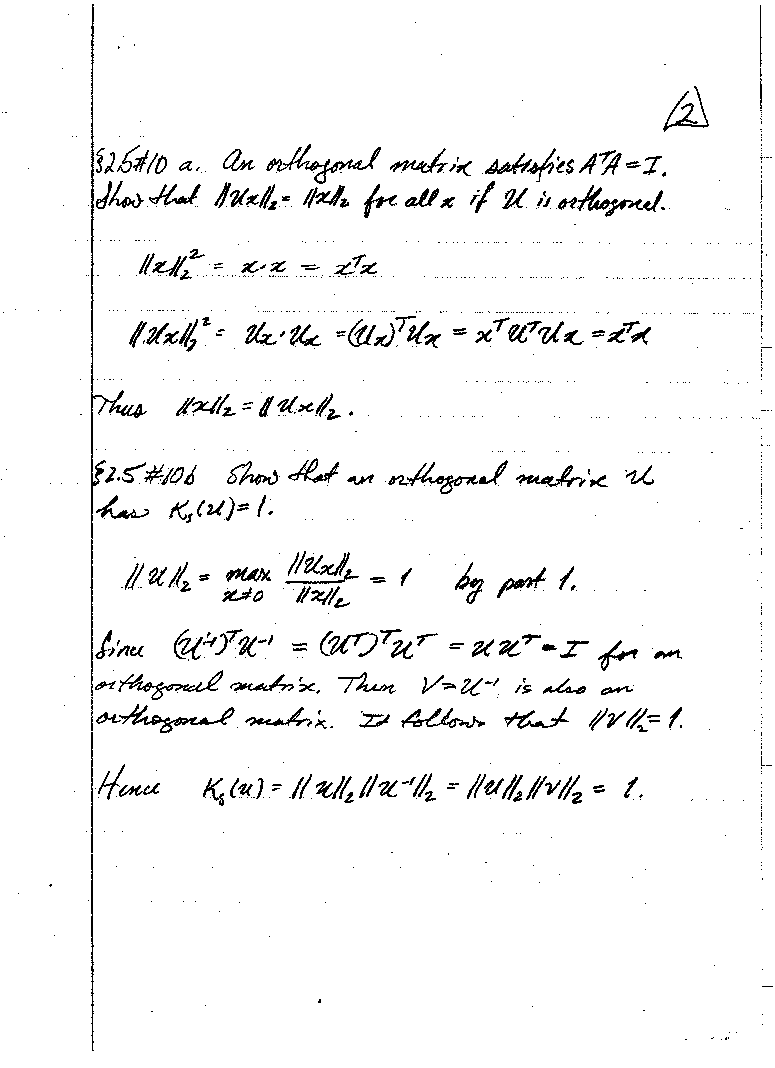 2
§2.5#10 a. An orthogonal matrix satisfies AᵀA = I.
Show that ||Ux||₂ = ||x||₂ for all x if U is orthogonal.
||x||₂² = x·x = xᵀx
||Ux||₂² = Ux·Ux = (Ux)ᵀUx = xᵀUᵀUx = xᵀx
Thus ||x||₂ = ||Ux||₂.
§2.5 #10b Show that an orthogonal matrix U
has Kₛ(U) = 1.
||U||₂ = max x≠0 ||Ux||₂ / ||x||₂ = 1 by part 1.
Since (U⁻¹)ᵀU⁻¹ = (Uᵀ)ᵀUᵀ = UUᵀ = I for an
orthogonal matrix. Then V = U⁻¹ is also an
orthogonal matrix. It follows that ||V||₂ = 1.
Hence Kₛ(U) = ||U||₂||U⁻¹||₂ = ||U||₂||V||₂ = 1.